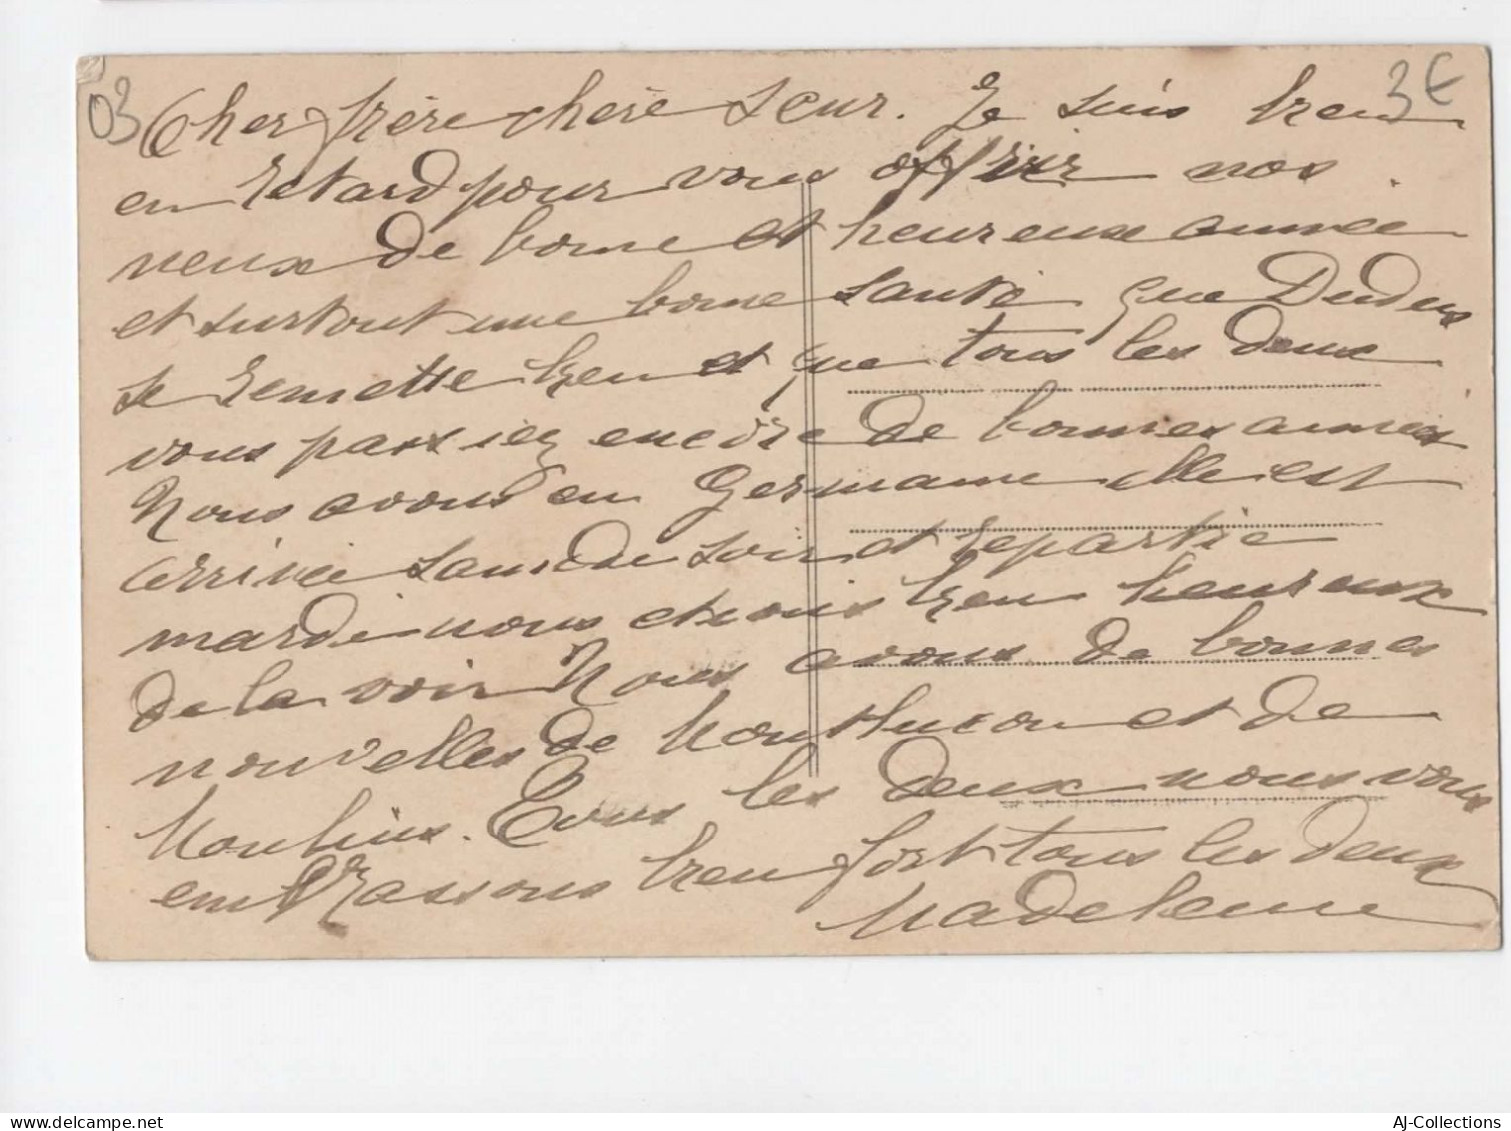 03
3€
Cher frère chère seur. Je suis bien
en retard pour vous offrir nos
veux de bonne et heureuse année
et surtout une bonne santé que
se remette bien et que tous les deux
vous passiez encore de bonnes années
Nous avons eu Germaine elle est
arrivée samedi soir et repartie
mardi nous etions bien heureux
de la voir Nous avons de bonnes
nouvelles de Montlucon et de
Moulins. Tous les deux nous vous
embrassons bien fort tous les deux
Madeleine
AJ-Collections